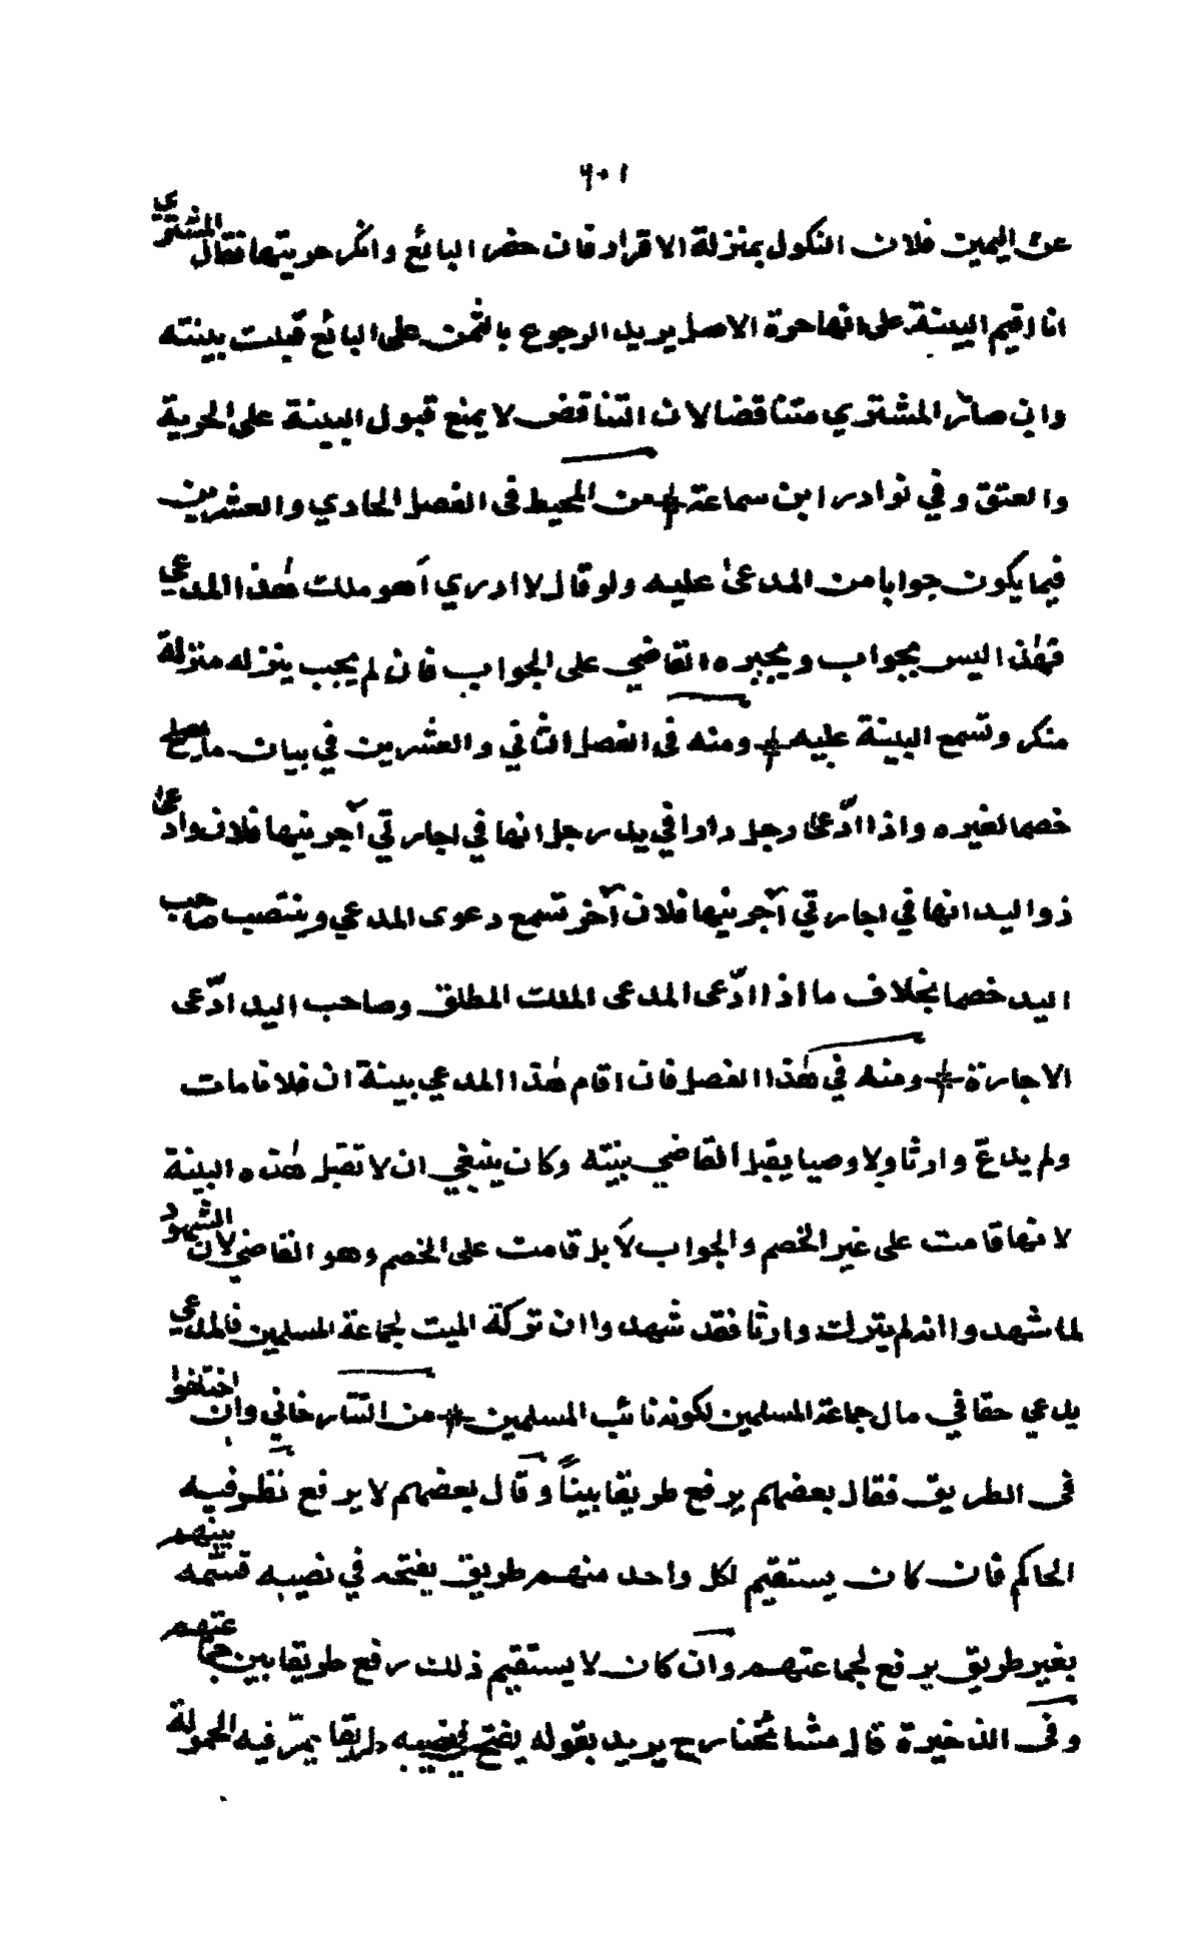 ٦٠١
عن اليمين فلان النكول بمنزلة الاقرار فان حضر البائع وانكر حريتها فقال المشتري
انا اقيم البينة على انها حرة الاصل يريد الرجوع بالثمن على البائع قبلت بينته
وان صار المشتري متناقضا لان التناقض لا يمنع قبول البينة على الحرية
والعتق وفي نوادر ابن سماعة من المحيط في الفصل الحادي والعشرين
فيما يكون جوابا من المدعى عليه ولو قال لا ادري أهو ملك هذا المدعي
فهذا ليس بجواب ويجبره القاضي على الجواب فان لم يجب ينزله منزلة
منكر وتسمع البينة عليه ومنه في الفصل الثاني والعشرين في بيان ما يصلح
خصما لغيره واذا ادّعى رجل دارا في يد رجل انها في اجارتي آجرنيها فلان وادّعى
ذو اليد انها في اجارتي آجرنيها فلان آخر تسمع دعوى المدعي وينتصب صاحب
اليد خصما بخلاف ما اذا ادّعى المدعى الملك المطلق وصاحب اليد ادّعى
الاجارة ومنه في هذا الفصل فان اقام هذا المدعي بينة ان فلانا مات
ولم يدع وارثا ولا وصيا يقبل القاضي بينته وكان ينبغي ان لا تقبل هذه البينة
لانها قامت على غير الخصم والجواب لا بل قامت على الخصم وهو القاضي لان الشهود
لما شهدوا انه لم يترك وارثا فقد شهدوا ان تركة الميت لجماعة المسلمين فالمدعي
يدعي حقا في مال جماعة المسلمين لكونه نائب المسلمين من التتارخاني وان اختلفوا
في الطريق فقال بعضهم يرفع طريقا بيناً وقال بعضهم لا يرفع نظر فيه
الحاكم فان كان يستقيم لكل واحد منهم طريق يفتحه في نصيبه قسمه بينهم
بغير طريق يرفع لجماعتهم وان كان لا يستقيم ذلك رفع طريقا بين جماعتهم
وفي الذخيرة قال مشائخنا رح يريد بقوله يفتح في نصيبه طريقا يمرّ فيه الحمولة